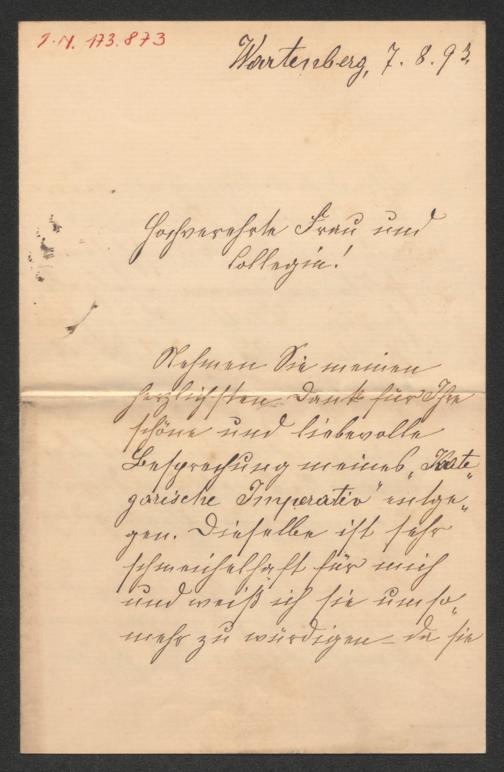 I. N. 173.873
Wartenberg, 7. 8. 93.
Hochverehrte Frau und
Collegin!
Nehmen Sie meinen
herzlichsten Dank für Ihre
schöne und liebevolle
Besprechung meines „Kate„
gorische Imperativ" entge„
gen. Dieselbe ist sehr
schmeichelhaft für mich
und weiß ich sie umso„
mehr zu würdigen – da sie